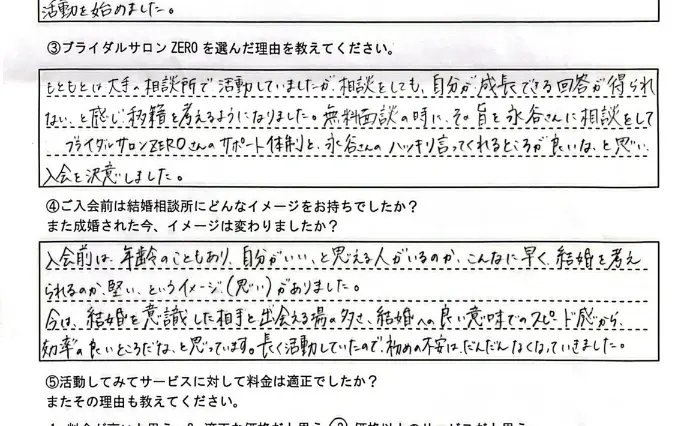 活動を始めました。
③ブライダルサロン ZERO を選んだ理由を教えてください。
もともとは大手の相談所で活動していましたが、相談をしても、自分が成長できる回答が得られ
ない、と感じ移籍を考えるようになりました。無料面談の時に、その旨を永谷さんに相談をして
ブライダルサロンZEROさんのサポート体制と、永谷さんのハッキリ言ってくれるところが良いな、と思い、
入会を決意しました。
④ご入会前は結婚相談所にどんなイメージをお持ちでしたか？
また成婚された今、イメージは変わりましたか？
入会前は、年齢のこともあり、自分がいい、と思える人がいるのか、こんなに早く、結婚を考え
られるのか、堅い、というイメージ（思い）がありました。
今は、結婚を意識した相手と出会える場の多さ、結婚への良い意味でのスピード感から、
効率の良いところだな、と思っています。長く活動していたので、初めの不安は、だんだんなくなっていきました。
⑤活動してみてサービスに対して料金は適正でしたか？
またその理由も教えてください。